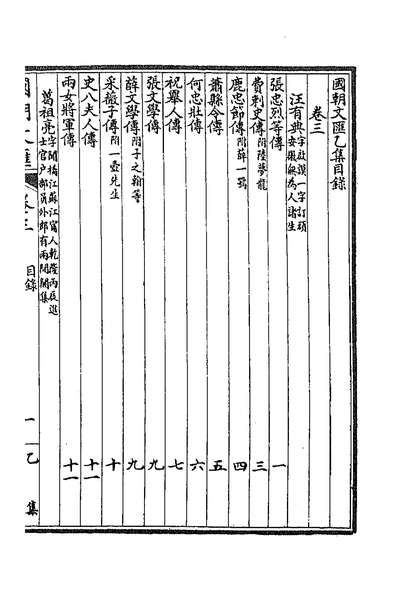 國朝文匯乙集目錄
卷三
汪有典 字啟謨一字訂頑安徽無為人諸生
張忠烈等傳 一
費刺史傳 附陸夢龍 三
鹿忠節傳 附薛一鶚 四
蕭縣令傳 五
何忠壯傳 六
祝舉人傳 七
張文學傳 九
薛文學傳 附子之翰等 九
采薇子傳 附一壺先生 十
史八夫人傳 十一
兩女將軍傳 十一
葛祖亮 字聞橋江蘇江甯人乾隆丙辰進士官戶部員外郎有兩閒閣集
國朝文匯 卷三 目錄 一 乙集